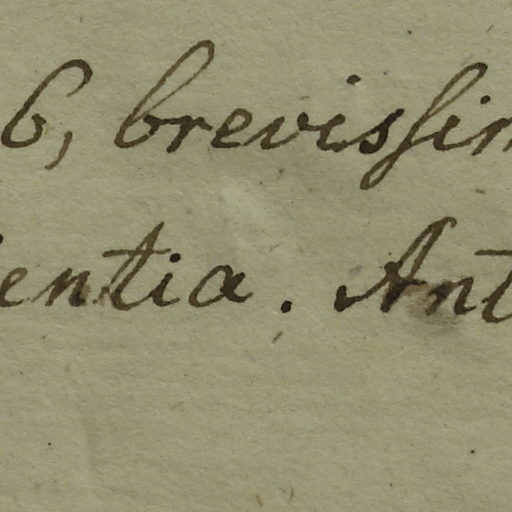 6, brevissim
ientia. Ant